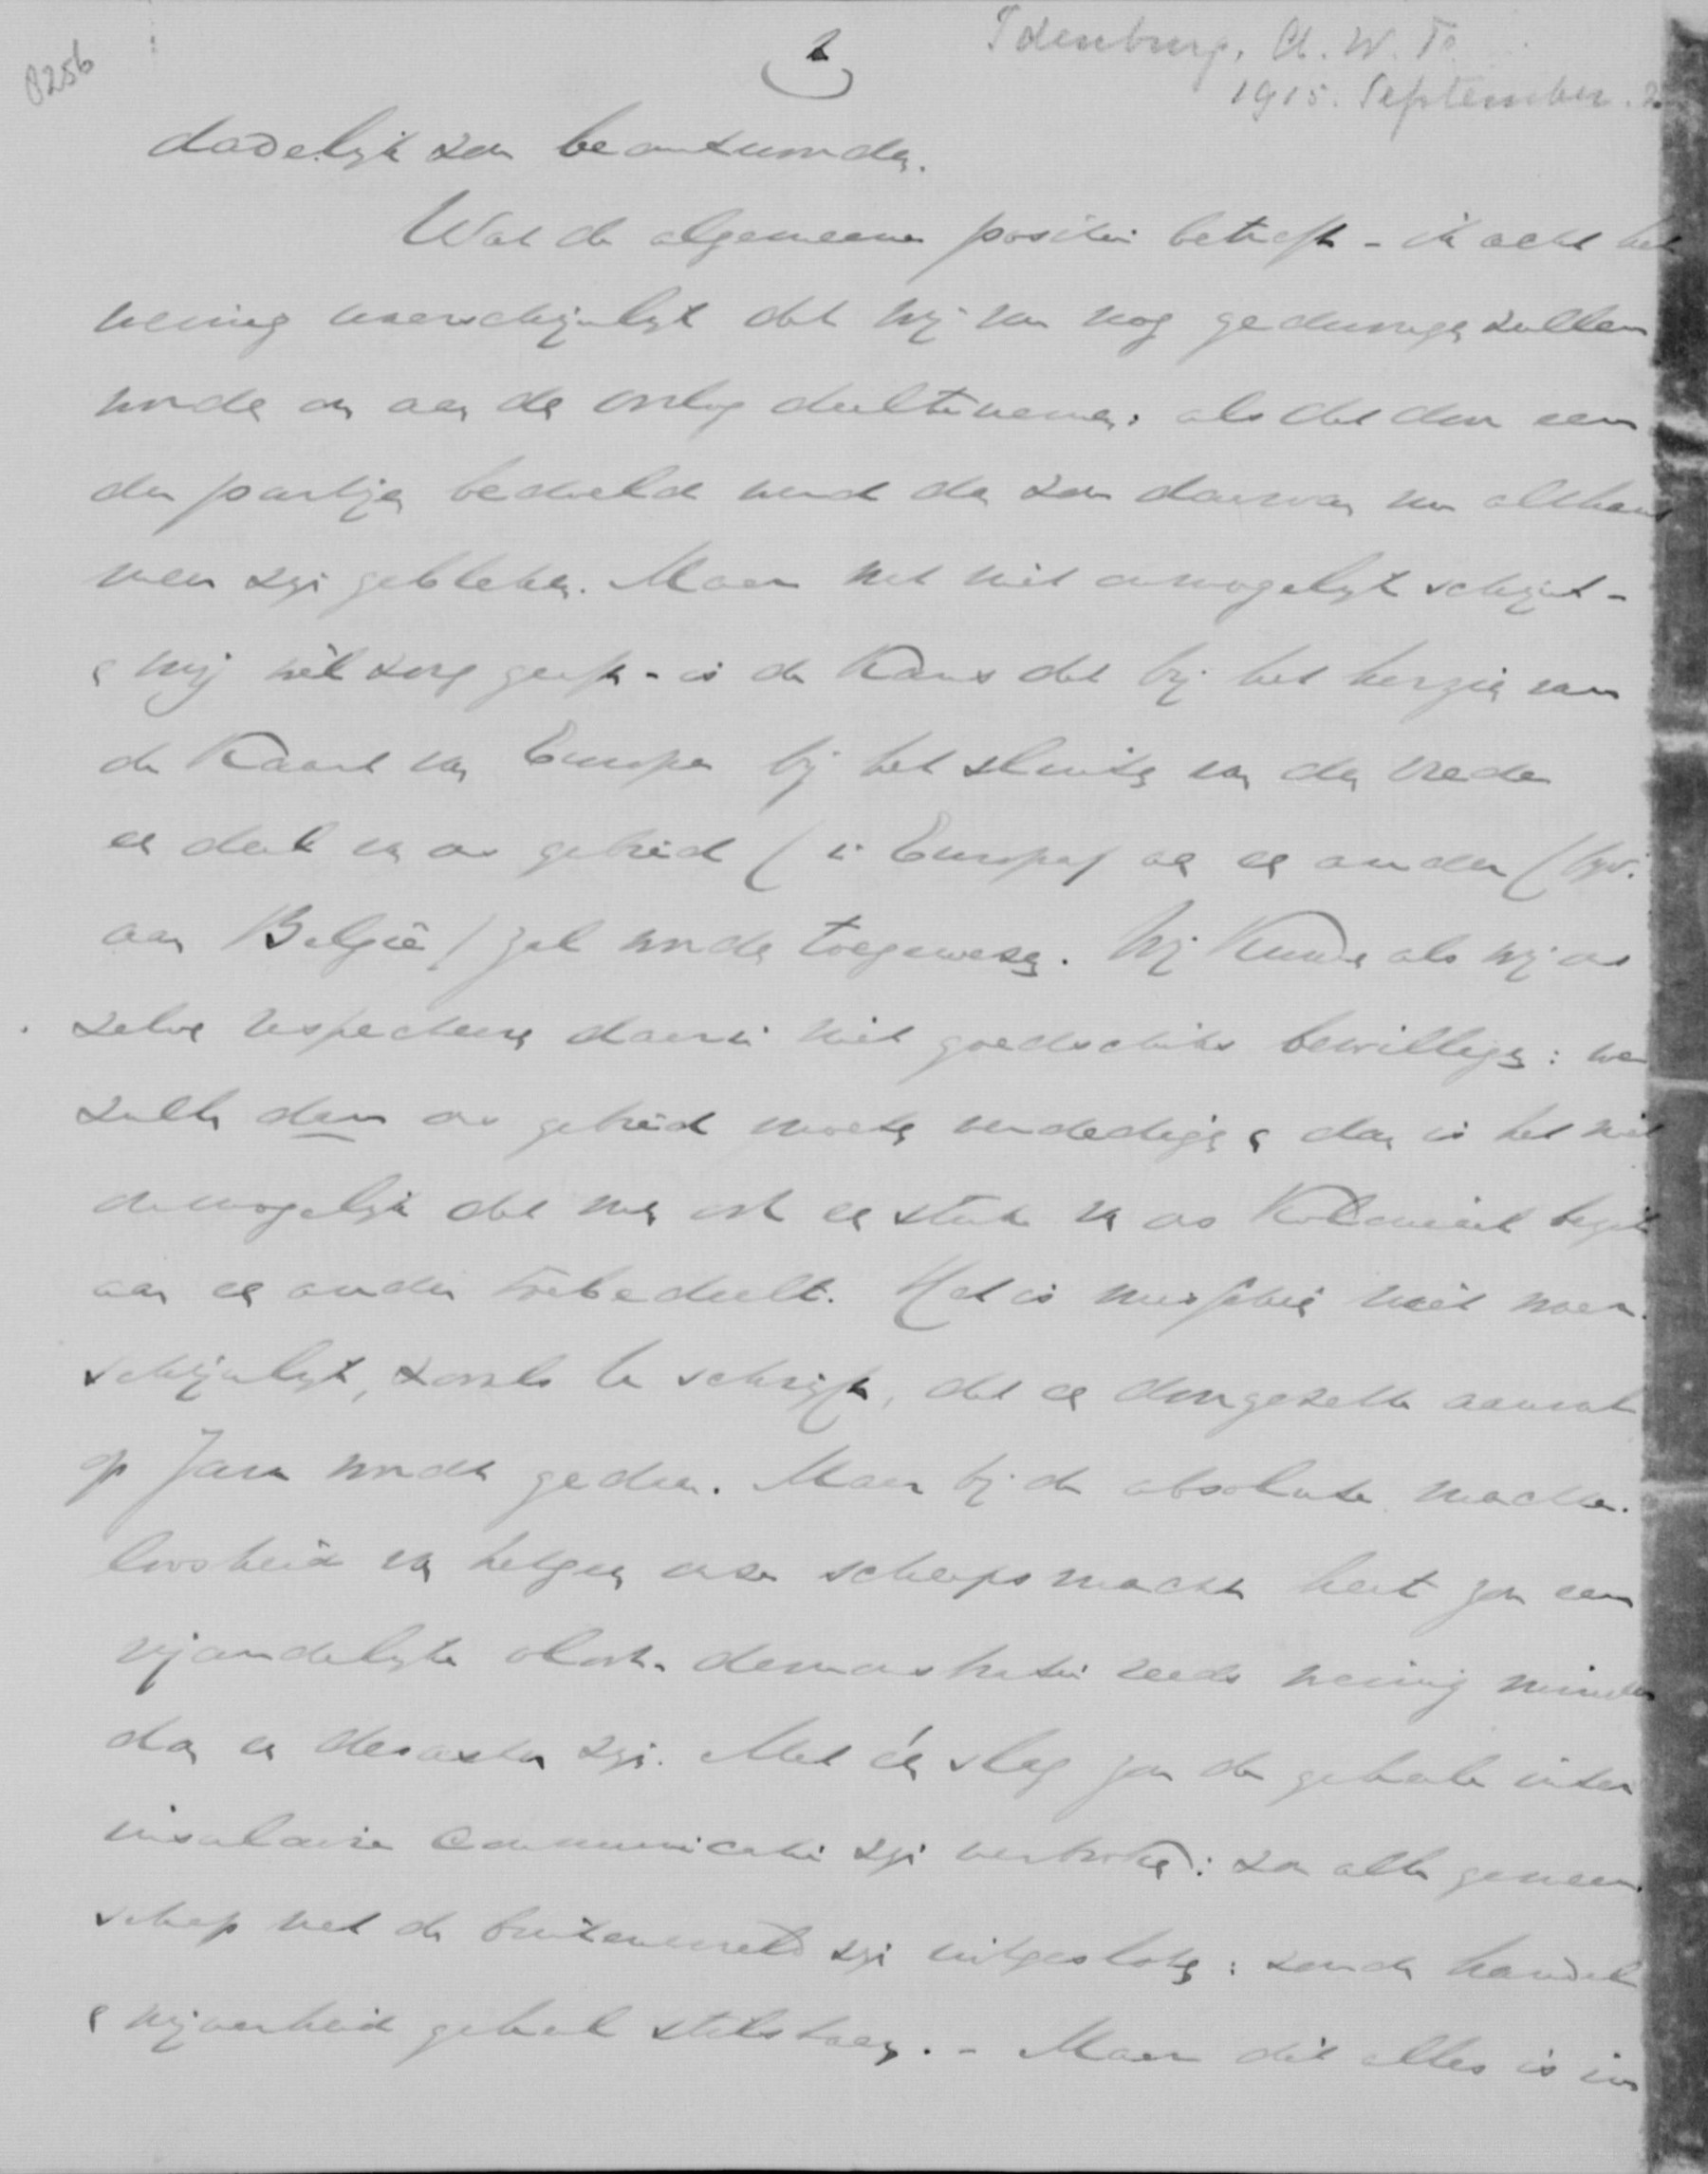 8256
2
Idenburg, A.W.F.
1915. September. 2
dadelijk zou beantwoorden.
Wat de algemeene positie betreft - ik acht het
weinig waarschijnlijk dat wij nu nog gedwongen zullen
worden om aan den oorlog deel te nemen; als dat door een
der partijen bedoeld werd dan zou daarvan nu althans
meer zijn gebleken. Maar wat niet onmogelijk schijnt -
en mij wèl zorg geeft - is de kans dat bij het herzien van
de kaart van Europa bij het sluiten van den vrede
een deel van ons gebied (in Europa) aan een ander (bijv.
aan België) zal worden toegewezen. Wij kunnen als wij ons
zelve respecteeren daarin niet goedschiks bewilligen: wij
zullen dan ons gebied moeten verdedigen en dan is het niet
onmogelijk dat men ook een stuk van ons koloniaal bezit
aan een ander toebedeelt. Het is misschien niet waar-
schijnlijk, zooals U schrijft, dat een doorgezette aanval
op Java wordt gedaan. Maar bij de absolute machte-
loosheid van hetgeen onze scheepsmacht heet zou een
vijandelijke vloot-demonstratie reeds weinig minder
dan een desaster zijn. Met één slag zou de geheele inter
insulaire communicatie zijn verbroken: zou alle gemeen-
schap met de buitenwereld zijn uitgesloten: zouden handel
en nijverheid geheel stilstaan. - Maar dit alles is in